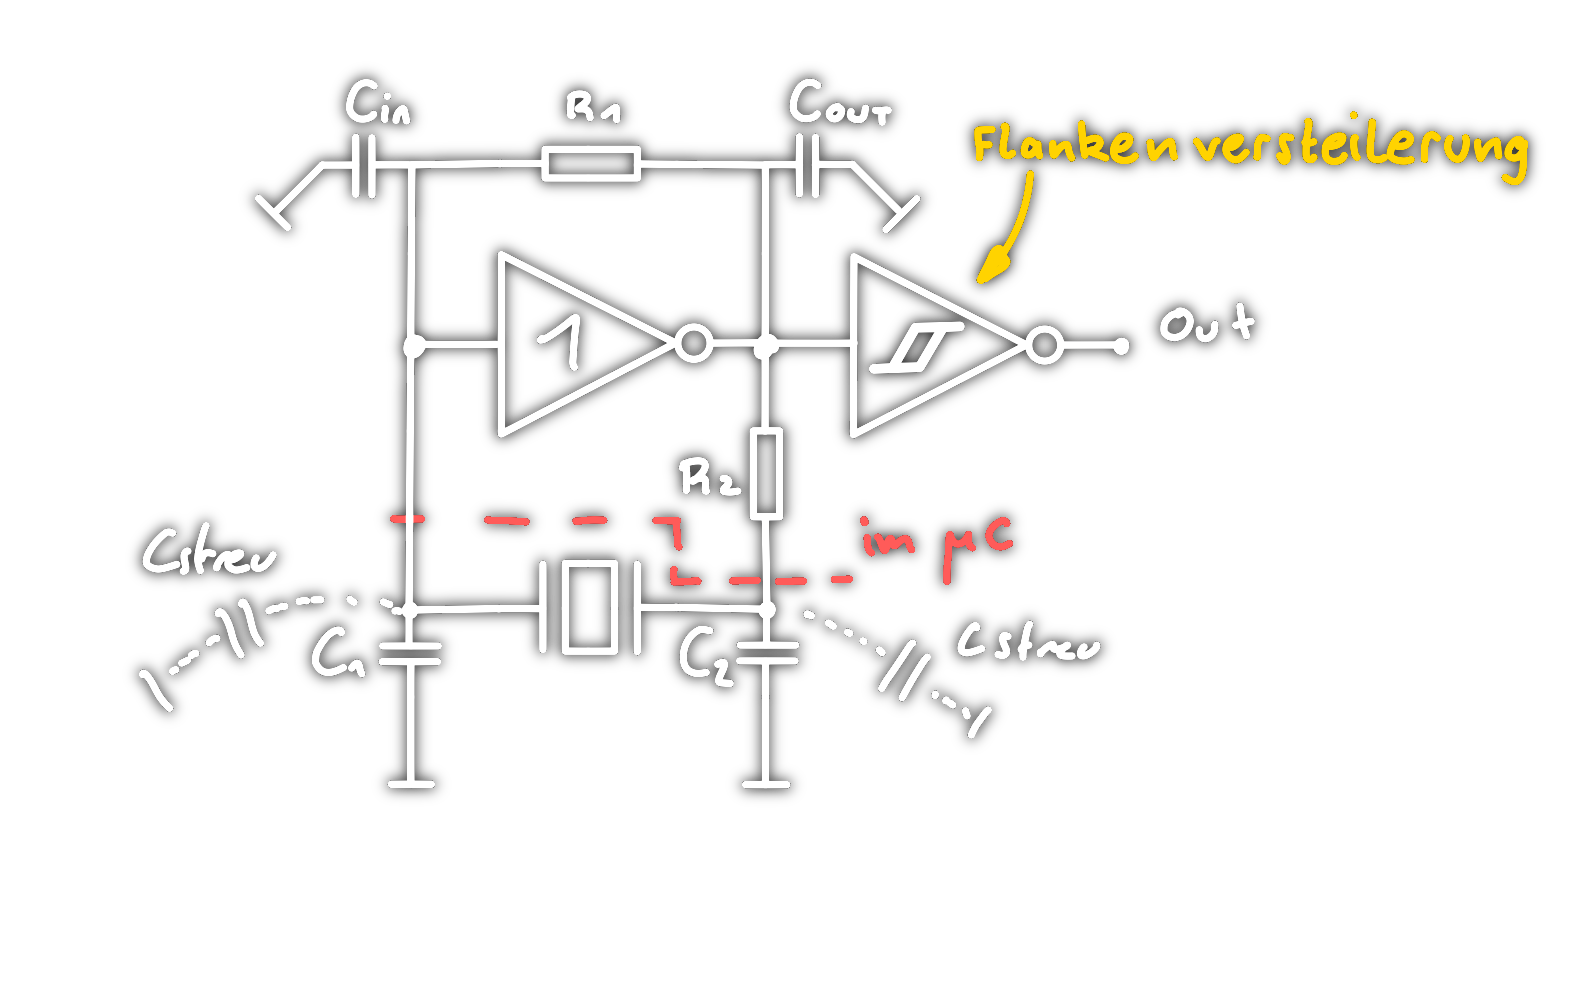 Cin
R1
COUT
Flankenversteilerung
1
Out
R2
im µC
Cstreu
C1
C2
Cstreu